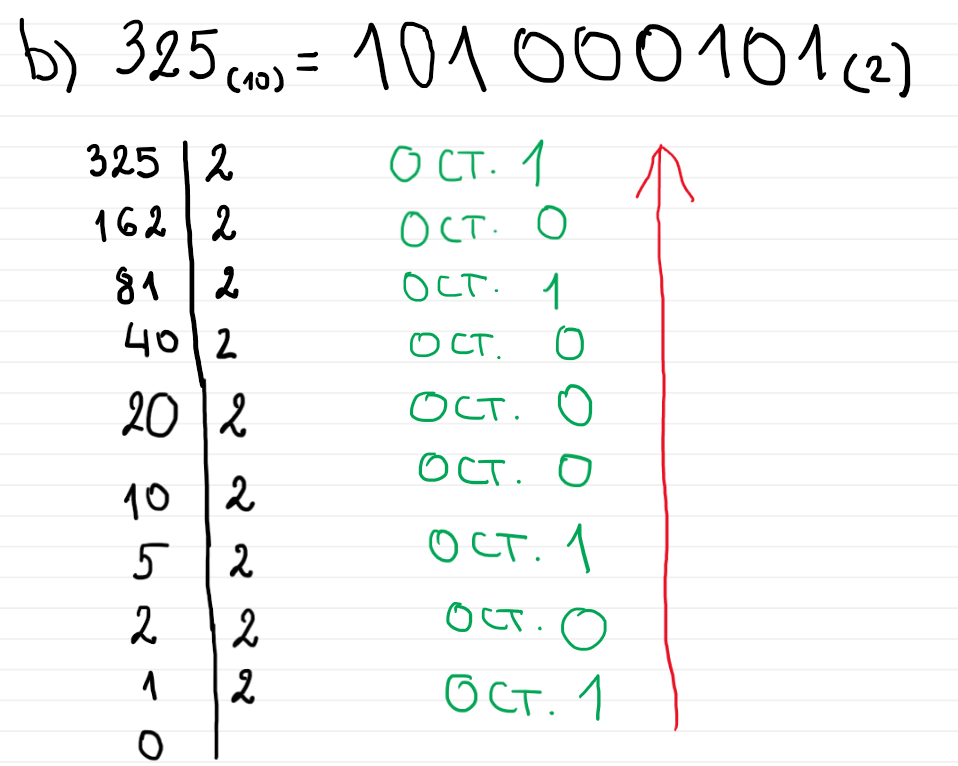 b) 325(10) = 101000101(2)
325 | 2 ост. 1
162 | 2 ост. 0
81 | 2 ост. 1
40 | 2 ост. 0
20 | 2 ост. 0
10 | 2 ост. 0
5 | 2 ост. 1
2 | 2 ост. 0
1 | 2 ост. 1
0 |